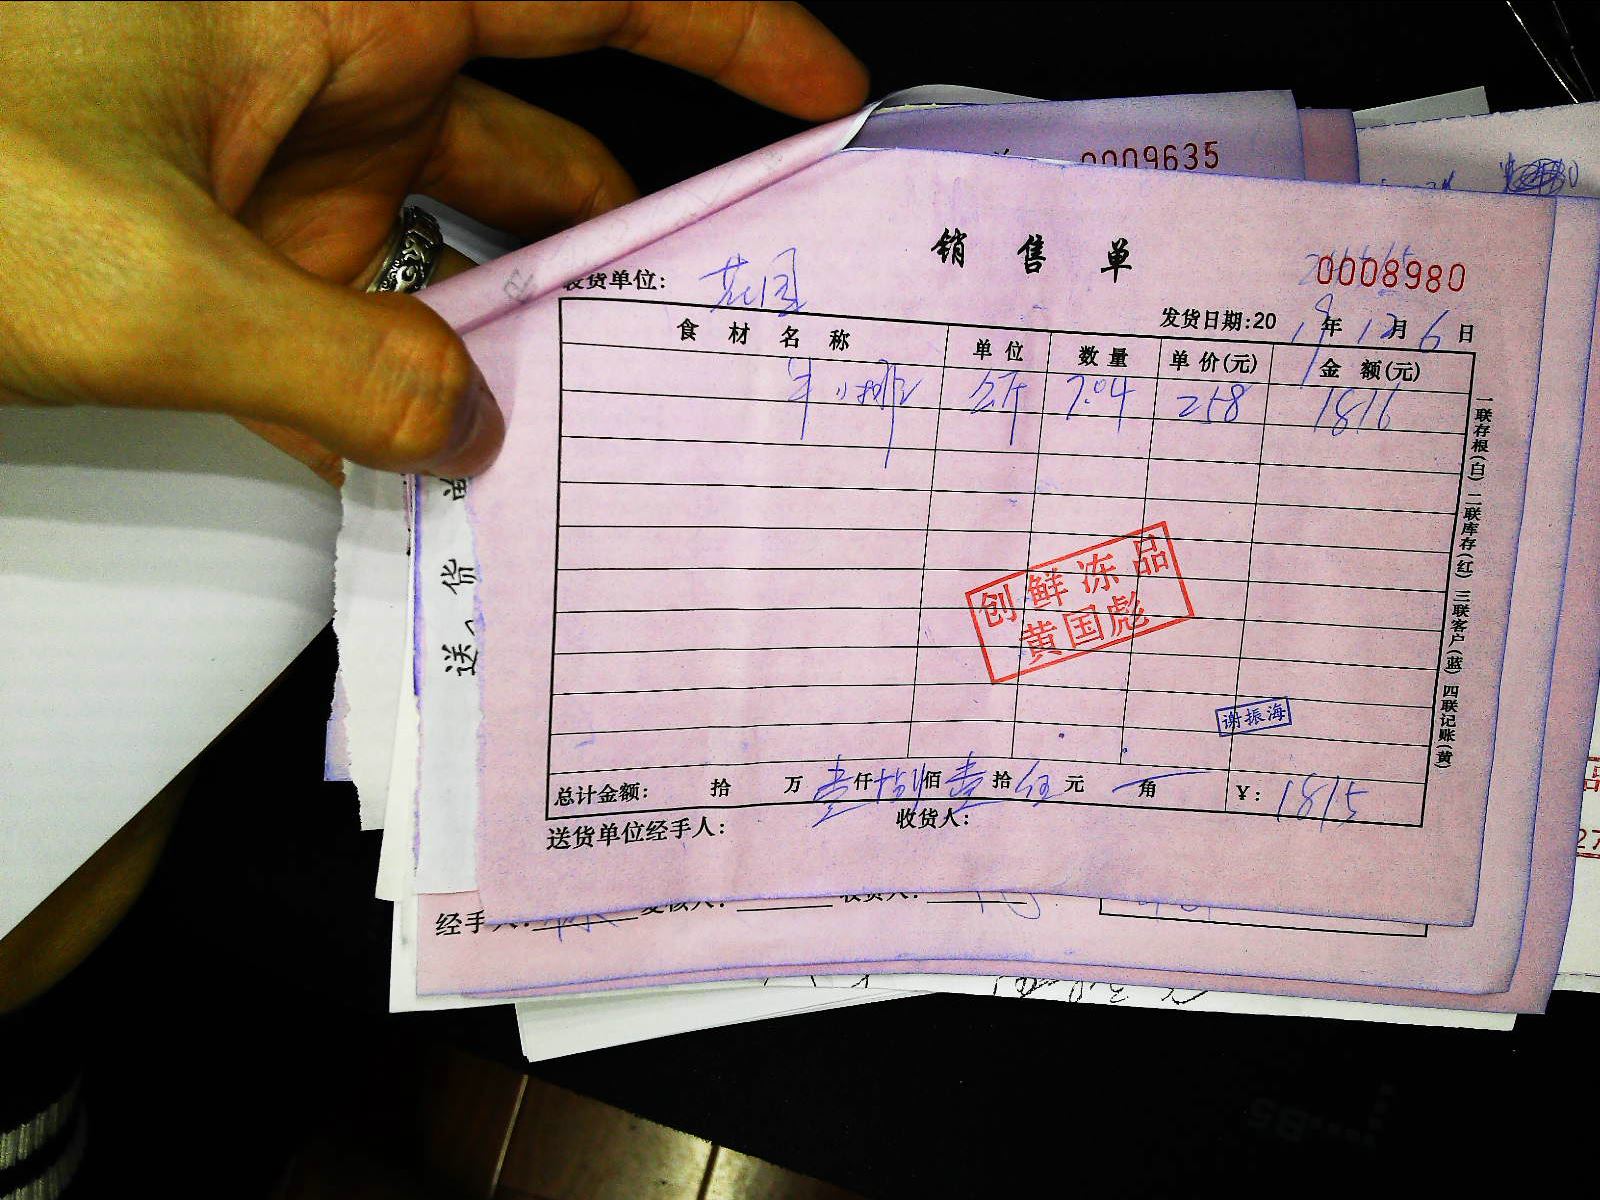 0009635
销售单
0008980
收货单位：花园
发货日期:2019年12月6日
食材名称 单位 数量 单价(元) 金额(元)
牛小排 公斤 7.04 258 1816
一联存根(白) 二联库存(红) 三联客户(蓝) 四联记账(黄)
创鲜冻品
黄国彪
谢振海
总计金额： 拾 万 壹仟捌佰壹拾伍元 角 ¥: 1815
送货单位经手人： 收货人：
送货单
经手人: 复核人: 收货人: